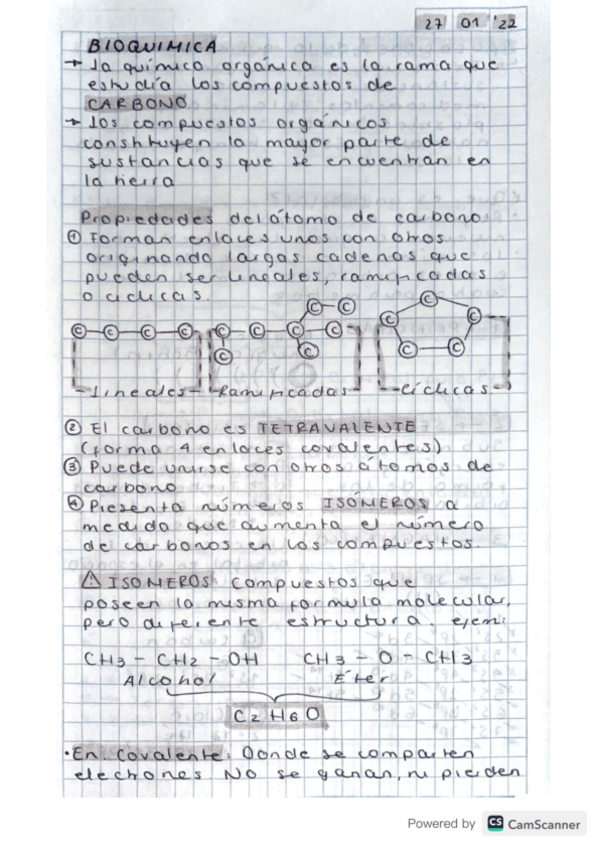 27 01 '22
BIOQUIMICA
→ la química orgánica es la rama que
estudia los compuestos de
CARBONO
→ los compuestos orgánicos
constituyen la mayor parte de
sustancias que se encuentran en
la tierra
Propiedades del átomo de carbono:
① Forman enlaces unos con otros
originando largas cadenas que
pueden ser lineales, ramificadas
o cíclicas.
C C C C C C C C C C C C C C C C C
Lineales Ramificadas Cíclicas
② El carbono es TETRAVALENTE
(forma 4 enlaces covalentes)
③ Puede unirse con otros átomos de
carbono
④ Presenta números ISÓMEROS a
medida que aumenta el número
de carbonos en los compuestos.
⚠ ISOMEROS: compuestos que
poseen la misma formula molecular,
pero diferente estructura. ejem:
CH3 - CH2 - OH CH3 - O - CH3
Alcohol Éter
C2 H6 O
·En. Covalente: Donde se comparten
electrones NO se ganan, ni pierden
Powered by CS CamScanner